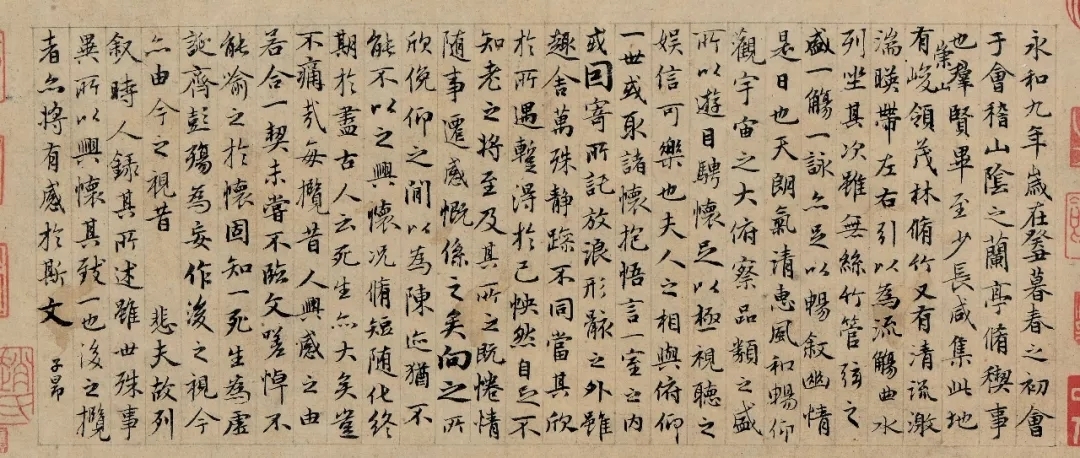 永和九年歲在癸丑暮春之初會
于會稽山陰之蘭亭脩稧事
也羣賢畢至少長咸集此地
有崇山峻領茂林脩竹又有清流激
湍暎帶左右引以為流觴曲水
列坐其次雖無絲竹管弦之
盛一觴一詠亦足以暢敘幽情
是日也天朗氣清惠風和暢仰
觀宇宙之大俯察品類之盛
所以遊目騁懷足以極視聽之
娛信可樂也夫人之相與俯仰
一世或取諸懷抱悟言一室之內
或因寄所託放浪形骸之外雖
趣舍萬殊静躁不同當其欣
於所遇蹔得於己怏然自足不
知老之將至及其所之既惓情
随事遷感慨係之矣向之所
欣俛仰之閒以為陳迹猶不
能不以之興懷況脩短随化終
期於盡古人云死生亦大矣豈
不痛哉每攬昔人興感之由
若合一契未嘗不臨文嗟悼不
能喻之於懷固知一死生為虛
誕齊彭殤為妄作後之視今
亦由今之視昔 悲夫故列
叙時人錄其所述雖世殊事
異所以興懷其致一也後之攬
者亦將有感於斯文 子昂